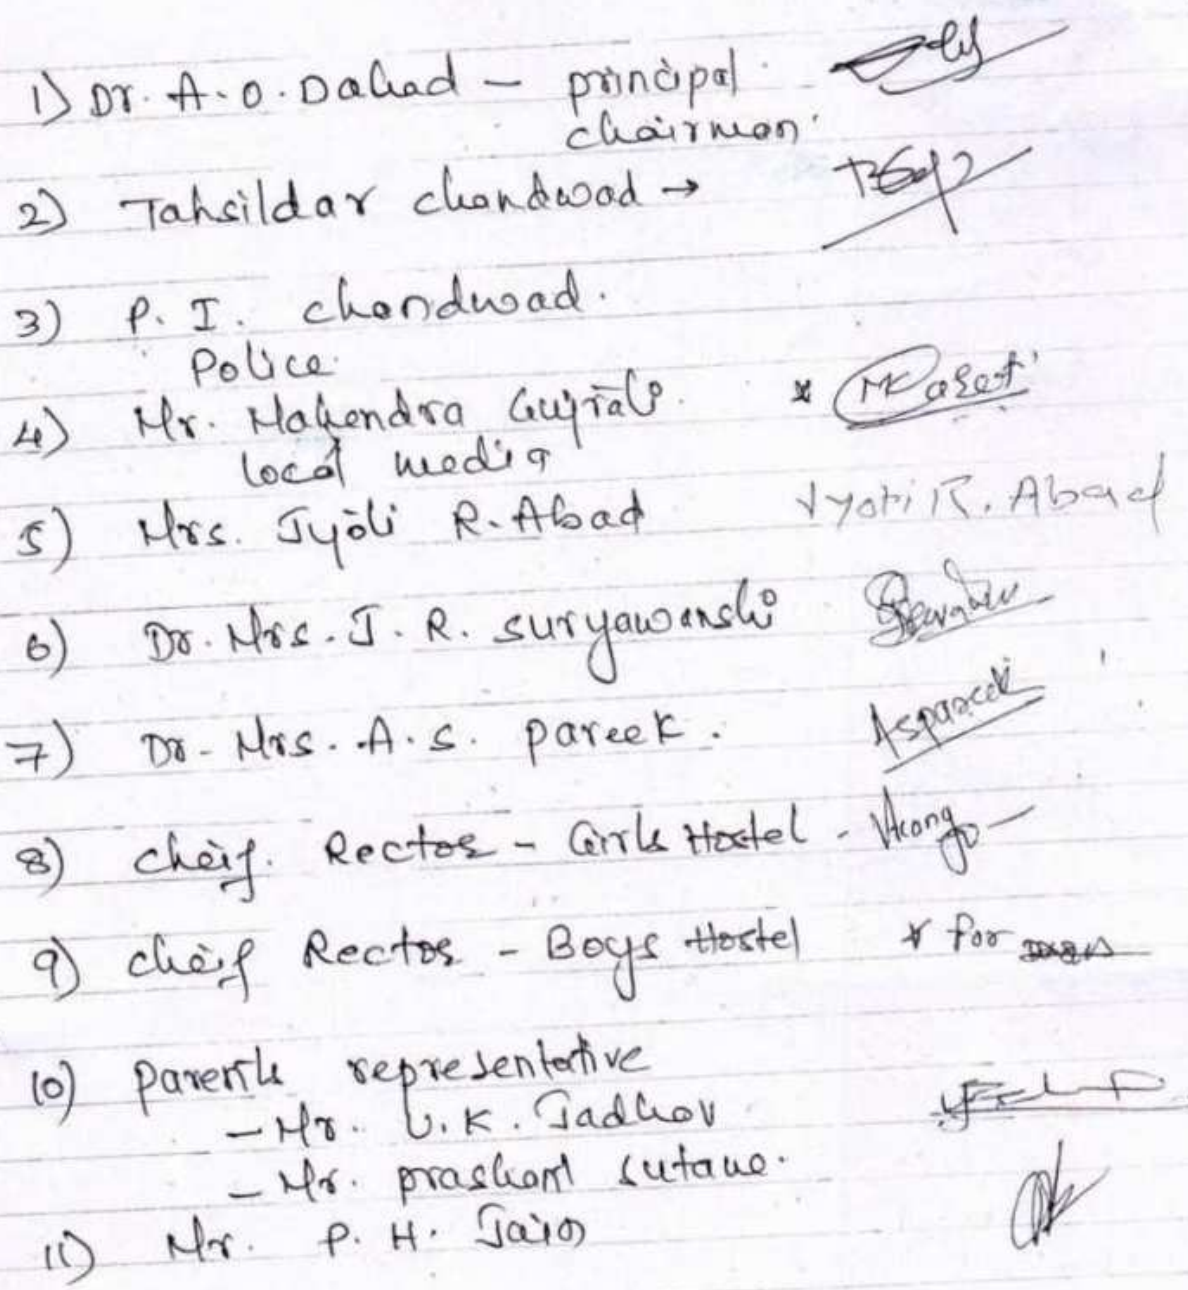 1) Dr. A. O. Dahad – principal
chairman
2) Tahsildar chandwad →
3) P. I. chandwad.
Police
4) Mr. Mahendra Gujrathi
local media
5) Mrs. Jyoti R. Abad Jyoti R. Abad
6) Dr. Mrs. J. R. suryawanshi
7) Dr. Mrs. A. S. pareek. Aspareek
8) cheif. Rector – Girls Hostel -
9) cheif Rector – Boys Hostel * for
10) parents representative
– Mr. U. K. Jadhav
– Mr. prashant sutane.
11) Mr. P. H. Jain